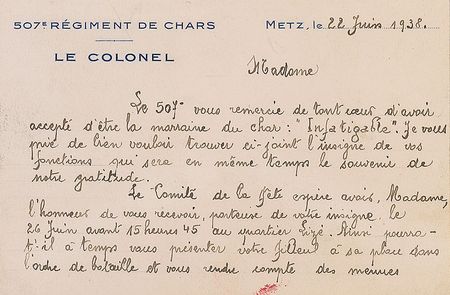 507E RÉGIMENT DE CHARS
METZ, le 22 Juin 1938.
LE COLONEL
Madame
Le 507e vous remercie de tout cœur d'avoir
accepté d'être la marraine du char: "Infatigable". Je vous
prie de bien vouloir trouver ci-joint l'insigne de vos
fonctions qui sera en même temps le souvenir de
notre gratitude.
Le Comité de la fête espère avoir, Madame,
l'honneur de vous recevoir, porteuse de votre insigne, le
26 Juin avant 15 heures 45 au quartier Lizé. Ainsi pourra-
t-il à temps vous présenter votre filleul à sa place dans
l'ordre de bataille et vous rendre compte des menues